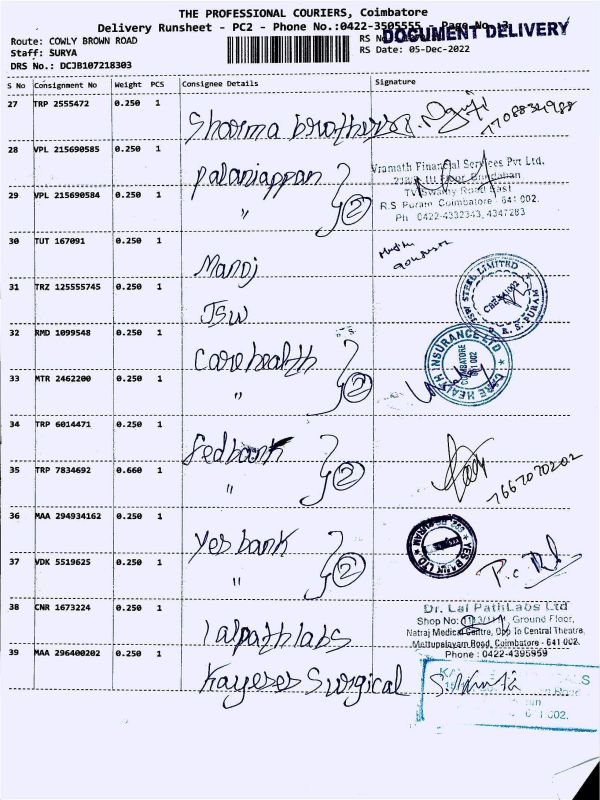 THE PROFESSIONAL COURIERS, Coimbatore
Delivery Runsheet - PC2 - Phone No.:0422-3505555 - Page No.:3
DOCUMENT DELIVERY
Route: COWLY BROWN ROAD
RS No
Staff: SURYA
RS Date: 05-Dec-2022
DRS No.: DCJB107218303
S No Consignment No Weight PCS Consignee Details Signature
27 TRP 2555472 0.250 1
Sharma brothers
7708834988
28 VPL 215690585 0.250 1
Palaniappan
Vramath Financial Services Pvt Ltd.
Floor, Brindaban
29 VPL 215690584 0.250 1
TV Swamy Road East
" 2
R.S Puram Coimbatore - 641 002.
Ph 0422-4332343, 4347283
30 TUT 167091 0.250 1
Manoj
31 TRZ 125555745 0.250 1
JSW
JSW STEEL LIMITED
R. S. PURAM
32 RMD 1099548 0.250 1
Care health
CARE HEALTH INSURANCE LTD
COIMBATORE
641 002
33 MTR 2462200 0.250 1
" 2
34 TRP 6014471 0.250 1
Fedbank
35 TRP 7834692 0.660 1
" 2
7667070202
36 MAA 294934162 0.250 1
Yes bank
YES BANK LTD
37 VDK 5519625 0.250 1
" 2
38 CNR 1673224 0.250 1
lalpath labs
Dr. Lal PathLabs Ltd
Shop No: Ground Floor,
Natraj Medical Centre, Opp to Central Theatre,
Mettupalayam Road, Coimbatore - 641 002.
Phone : 0422-4395959
39 MAA 296400202 0.250 1
Kayeses Surgical